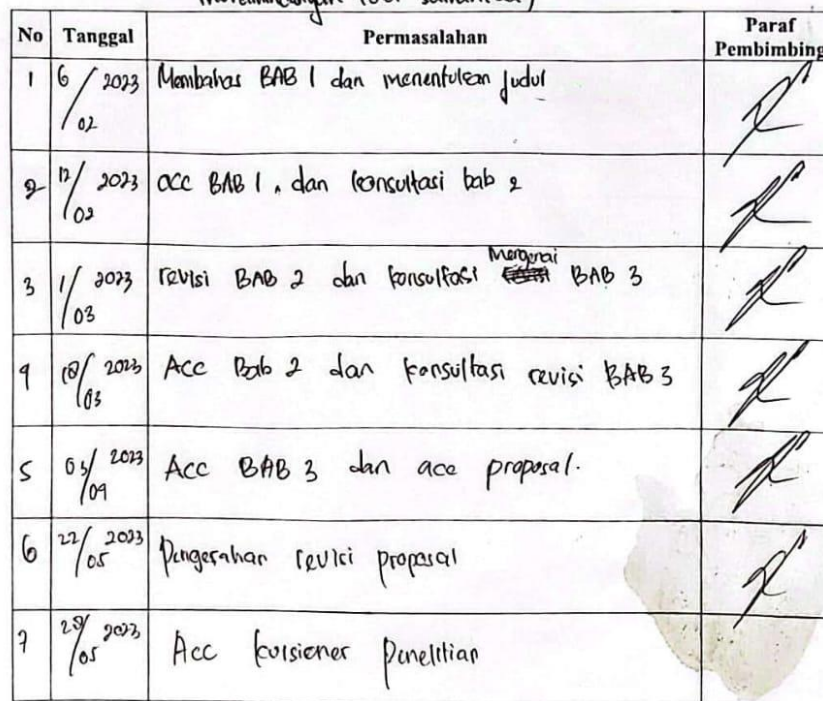 No Tanggal Permasalahan Paraf Pembimbing
1 6/02 2023 Membahas BAB 1 dan menentukan judul
2 12/02 2023 acc BAB 1, dan konsultasi bab 2
3 1/03 2023 revisi BAB 2 dan konsultasi Mengenai BAB 3
4 /03 2023 Acc Bab 2 dan konsultasi revisi BAB 3
5 03/04 2023 Acc BAB 3 dan acc proposal.
6 22/05 2023 revisi proposal
7 /05 2023 Acc penelitian